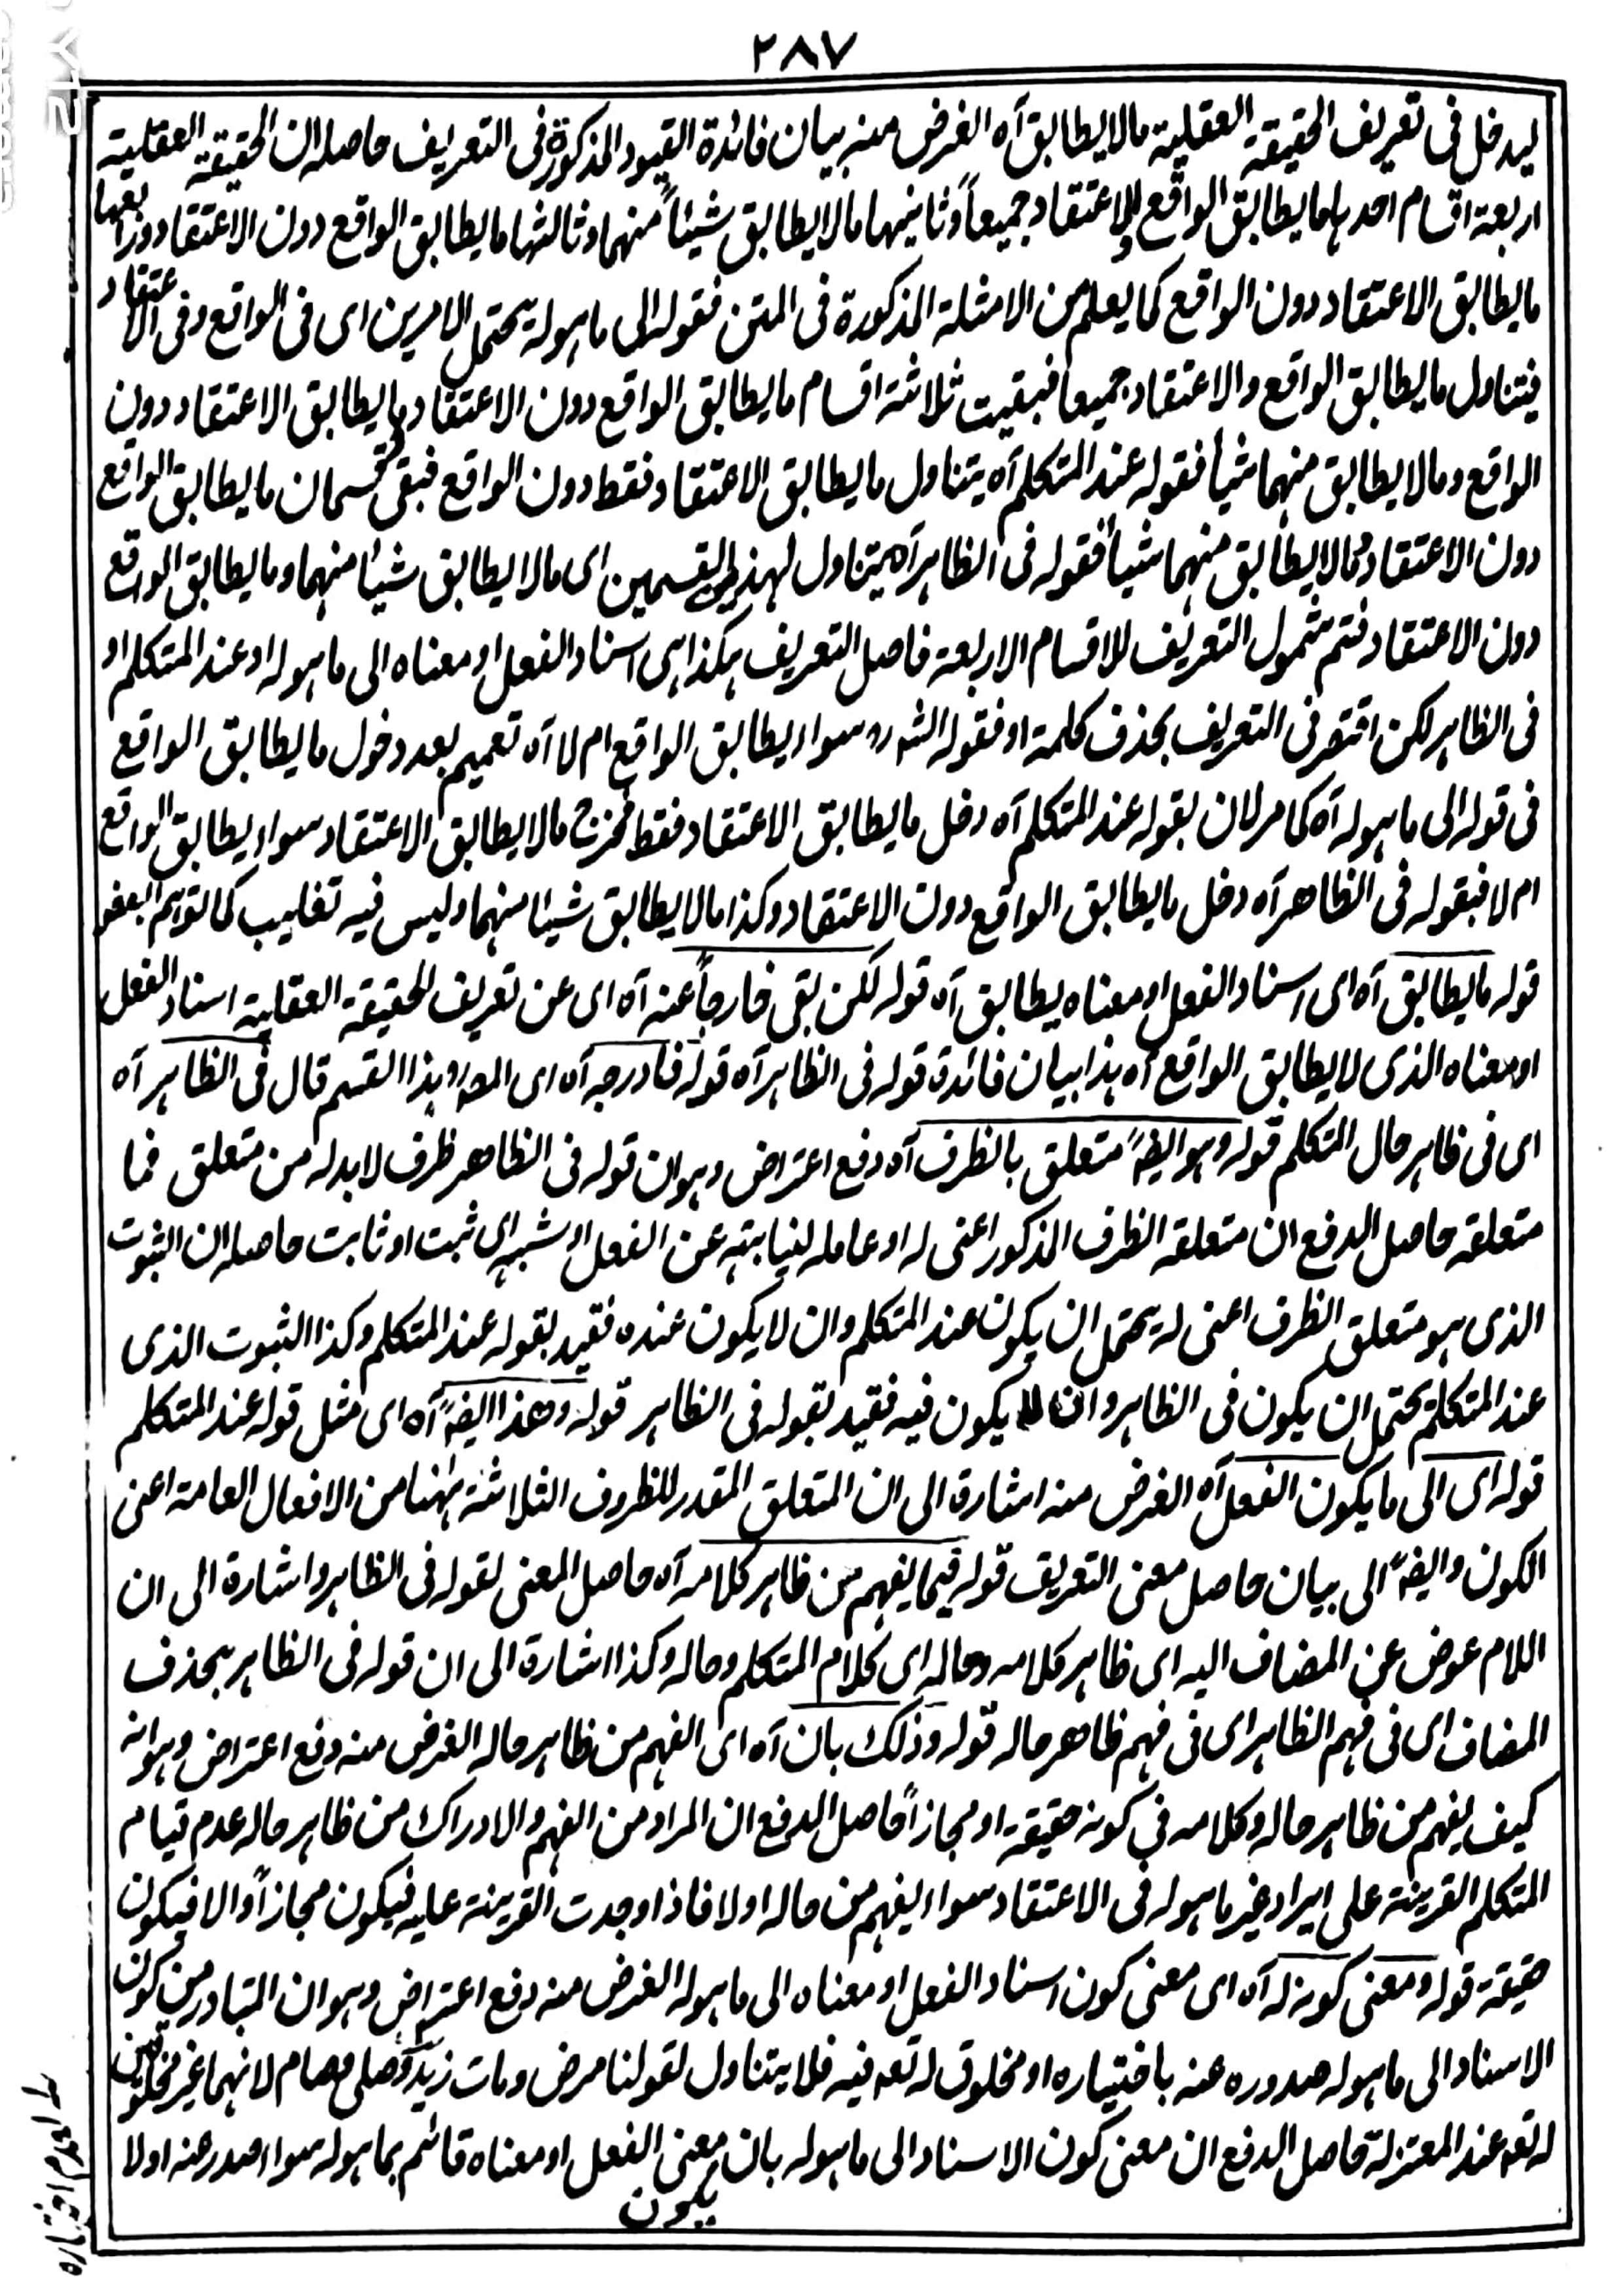 ٢٨٧
ليدخل فى تعريف الحقيقة العقلية مالا يطابق آه الغرض منه بيان فائدة القيود المذكورة فى التعريف حاصله ان الحقيقة العقلية
اربعة اقسام احدہا ما يطابق الواقع والاعتقاد جميعاً وثانيہا مالا يطابق شيئاً منہما وثالثہا ما يطابق الواقع دون الاعتقاد ورابعہا
ما يطابق الاعتقاد دون الواقع كما يعلم من الامثلة المذكورة فى المتن فقوله الى ما ہو له يحتمل الامرين اى فى الواقع وفى الاعتقاد
فيتناول ما يطابق الواقع والاعتقاد جميعا فبقيت ثلاثة اقسام ما يطابق الواقع دون الاعتقاد وما يطابق الاعتقاد دون
الواقع ومالا يطابق منہما شيأ فقوله عند المتكلم آه يتناول ما يطابق الاعتقاد فقط دون الواقع فبقى قسمان ما يطابق الواقع
دون الاعتقاد ومالا يطابق منہما شيأ فقوله فى الظاہر آه يتناول لہذين القسمين اى مالا يطابق شيئا منہما وما يطابق الواقع
دون الاعتقاد فتم شمول التعريف للاقسام الاربعة فاصل التعريف ہكذا ہى اسناد الفعل او معناه الى ما ہو له او عند المتكلم او
فى الظاہر لكن اقتصر فى التعريف بحذف كلمة او فقوله الشارح سواء يطابق الواقع ام لا آه تعميم بعد دخول ما يطابق الواقع
فى قوله الى ما ہو له آه كما مر لان بقوله عند المتكلم آه دخل ما يطابق الاعتقاد فقط فخرج مالا يطابق الاعتقاد سواء يطابق الواقع
ام لا فبقوله فى الظاهر آه دخل ما يطابق الواقع دون الاعتقاد وكذا مالا يطابق شيئا منہما وليس فيه تغليب كما توہم البعض
قوله ما يطابق آه اى اسناد الفعل او معناه يطابق آه قوله لكن بقى خارجاً عنه آه اى عن تعريف الحقيقة العقلية اسناد الفعل
او معناه الذى لا يطابق الواقع آه ہذا بيان فائدة قوله فى الظاہر آه قوله فادرجه آه اى المورد ہذا القسم قال فى الظاہر آه
اى فى ظاہر حال المتكلم قوله وہو ايضاً متعلق بالظرف آه دفع اعتراض وہو ان قوله فى الظاهر ظرف لابد له من متعلق فما
متعلقه حاصل الدفع ان متعلقه الظرف المذكور اعنى له او عامله لنيابته عن الفعل او شبہه اى ثبت او ثابت حاصله ان الثبوت
الذى ہو متعلق الظرف اعنى له يحتمل ان يكون عند المتكلم وان لا يكون عنده فقيد بقوله عند المتكلم وكذا الثبوت الذى
عند المتكلم يحتمل ان يكون فى الظاہر وان لا يكون فيه فقيد بقوله فى الظاہر قوله وهذا ايضاً آه اى مثل قوله عند المتكلم
قوله اى الى ما يكون الفعل آه الغرض منه اشارة الى ان المتعلق المقدر للظروف الثلاثة ہٰہنا من الافعال العامة اعنى
الكون وايضاً الى بيان حاصل معنى التعريف قوله فيما يفہم من ظاہر كلامه آه حاصل المعنى لقوله فى الظاہر واشارة الى ان
اللام عوض عن المضاف اليه اى ظاہر كلامه وحاله اى كلام المتكلم وحاله وكذا اشارة الى ان قوله فى الظاہر بحذف
المضاف اى فى فہم الظاہر اى فى فہم ظاهر حاله قوله وذلك بان آه اى الفہم من ظاہر حاله الغرض منه دفع اعتراض وہو انه
كيف يفہم من ظاہر حاله وكلامه فى كونه حقيقة او مجازاً حاصل الدفع ان المراد من الفہم والادراك من ظاہر حاله عدم قيام
المتكلم القرينة على ايراد غير ما ہو له فى الاعتقاد سواء يفہم من حاله او لا فاذا وجدت القرينة عليه فيكون مجازاً والا فيكون
حقيقة قوله ومعنى كونه له آه اى معنى كون اسناد الفعل او معناه الى ما ہو له الغرض منه دفع اعتراض وہو ان المتبادر من كون
الاسناد الى ما ہو له صدوره عنه باختياره او مخلوق له تعه فيه فلا يتناول لقولنا مرض ومات زيد وصلى وصام لانہما غير مخلوقين
له تعه عند المعتزلة حاصل الدفع ان معنى كون الاسناد الى ما ہو له بان يكون معنى الفعل او معناه قائم بما ہو له سواء صدر عنه او لا